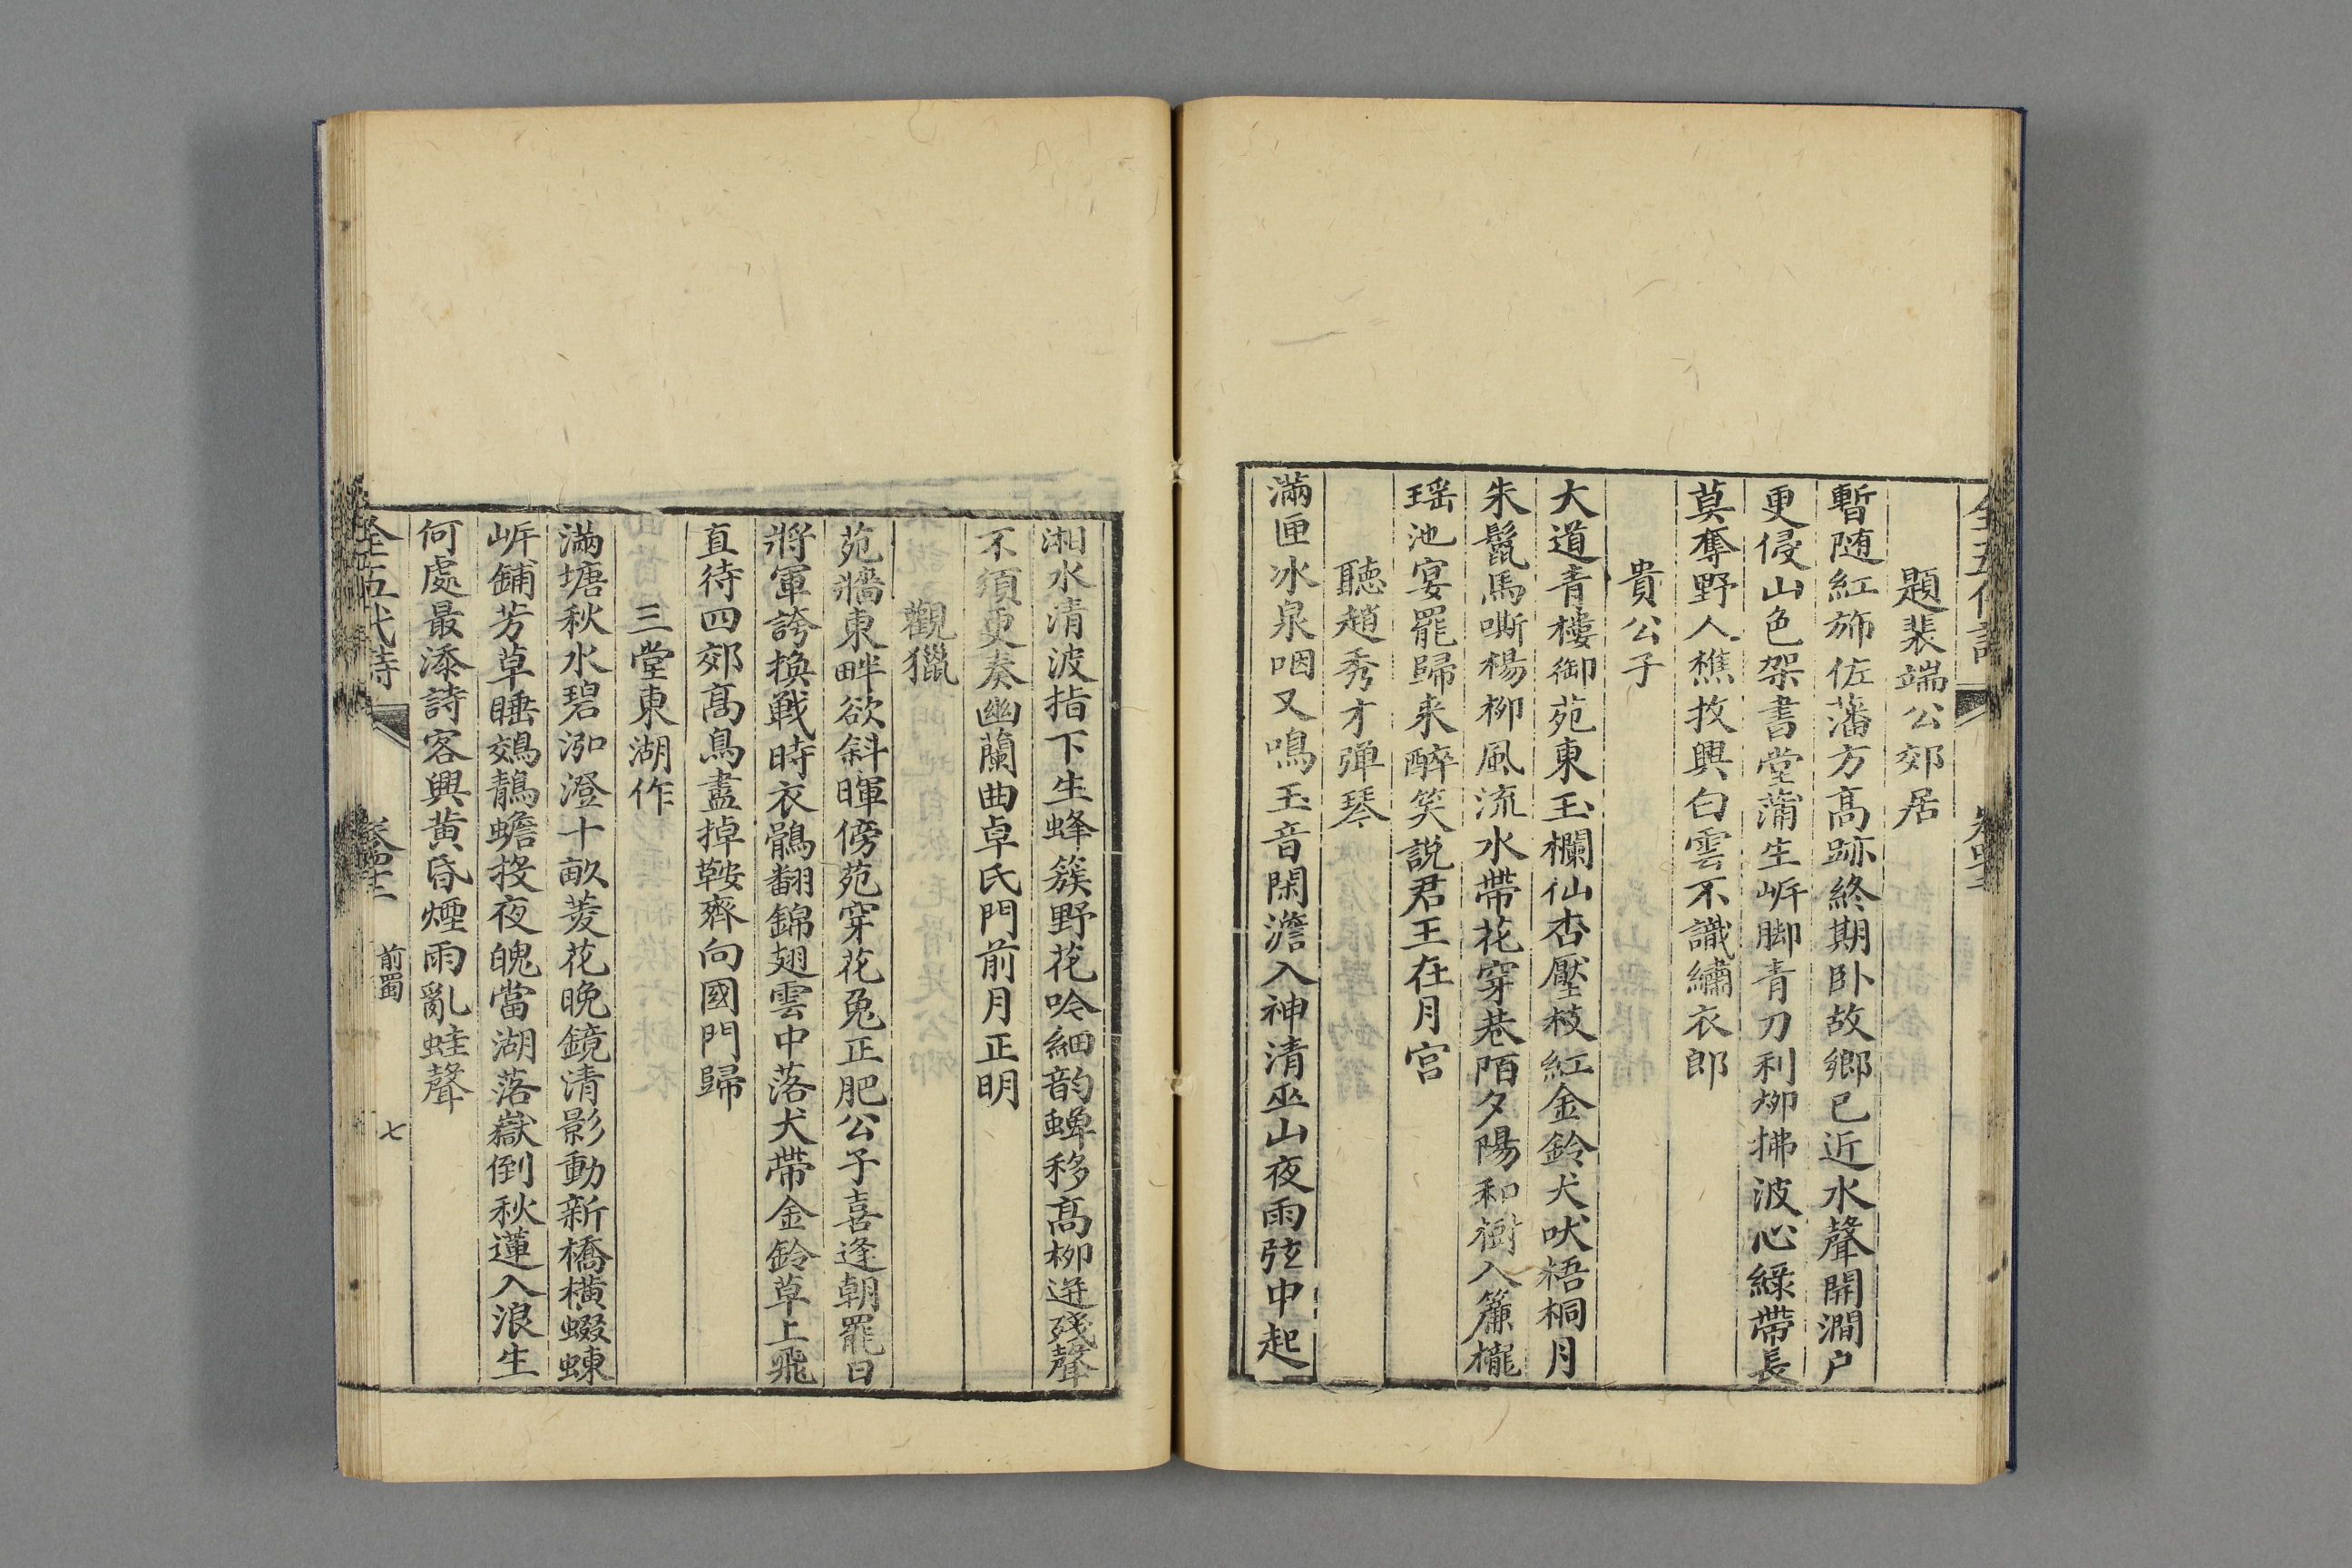 題裴端公郊居
暫随紅斾佐藩方高跡終期卧故鄉已近水聲開澗户
更侵山色架書堂蒲生㟁脚青刀利栁拂波心綠帶長
莫奪野人樵牧興白雲不識繡衣郎
貴公子
大道青樓御苑東玉欄仙杏壓枝紅金鈴犬吠梧桐月
朱鬛馬嘶楊栁風流水帶花穿巷陌夕陽和樹入簾櫳
瑶池宴罷歸来醉笑説君王在月宫
聽趙秀才弹琴
滿匣冰泉咽又鳴玉音閑澹入神清巫山夜雨弦中起
湘水清波指下生蜂簇野花吟細韵蟬移髙栁迸殘聲
不須更奏幽蘭曲卓氏門前月正明
觀獵
苑牆東畔欲斜暉傍苑穿花兔正肥公子喜逢朝罷日
將軍誇換戰時衣鶻翻錦翅雲中落犬帶金鈴草上飛
直待四郊髙鳥盡掉鞍齊向國門歸
三堂東湖作
滿塘秋水碧泓澄十畝菱花晚鏡清影動新橋橫螮蝀
㟁鋪芳草睡鵁鶄蟾投夜魄當湖落嶽倒秋蓮入浪生
何處最添詩客興黄昏煙雨亂蛙聲
全五代詩
前蜀
七